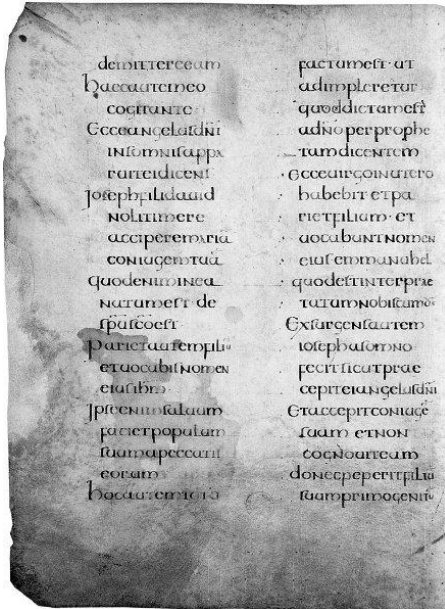 demittereeam
haecautemeo
cogitante
Ecceangelusdn̄i
insomnisappa
ruiteidicens
Iosephfilidauid
nolitimere
acciperemaria
coniugemtuā
quodeniminea
natumest·de
sp̄uscōest
Parietautemfiliū
etuocabisnomen
eiusih̄m
Ipseenimsaluum
facietpopulum
suumapeccatis
eorum
hocautemtotū
factumest·ut
adimpleretur
quoddictumest
adn̄o perprophe
tamdicentem
Ecceuirgoinutero
habebit·etpa
rietfilium·et
uocabuntnomen
eiusemmanuhel
quodestinterprae
tatumnobiscumd̄s
Exsurgensautem
iosephasomno
fecitsicutprae
cepiteiangelusdn̄i
Etaccepitconiugē
suam etnon
cognouiteam
donecpeperitfiliū
suumprimogenitū